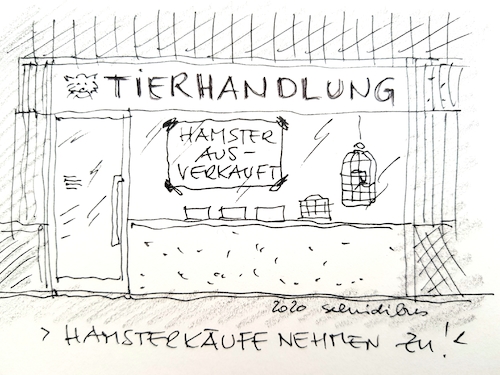 TIERHANDLUNG
HAMSTER
AUS-
VERKAUFT
2020 schnidibus
> HAMSTERKÄUFE NEHMEN ZU! <